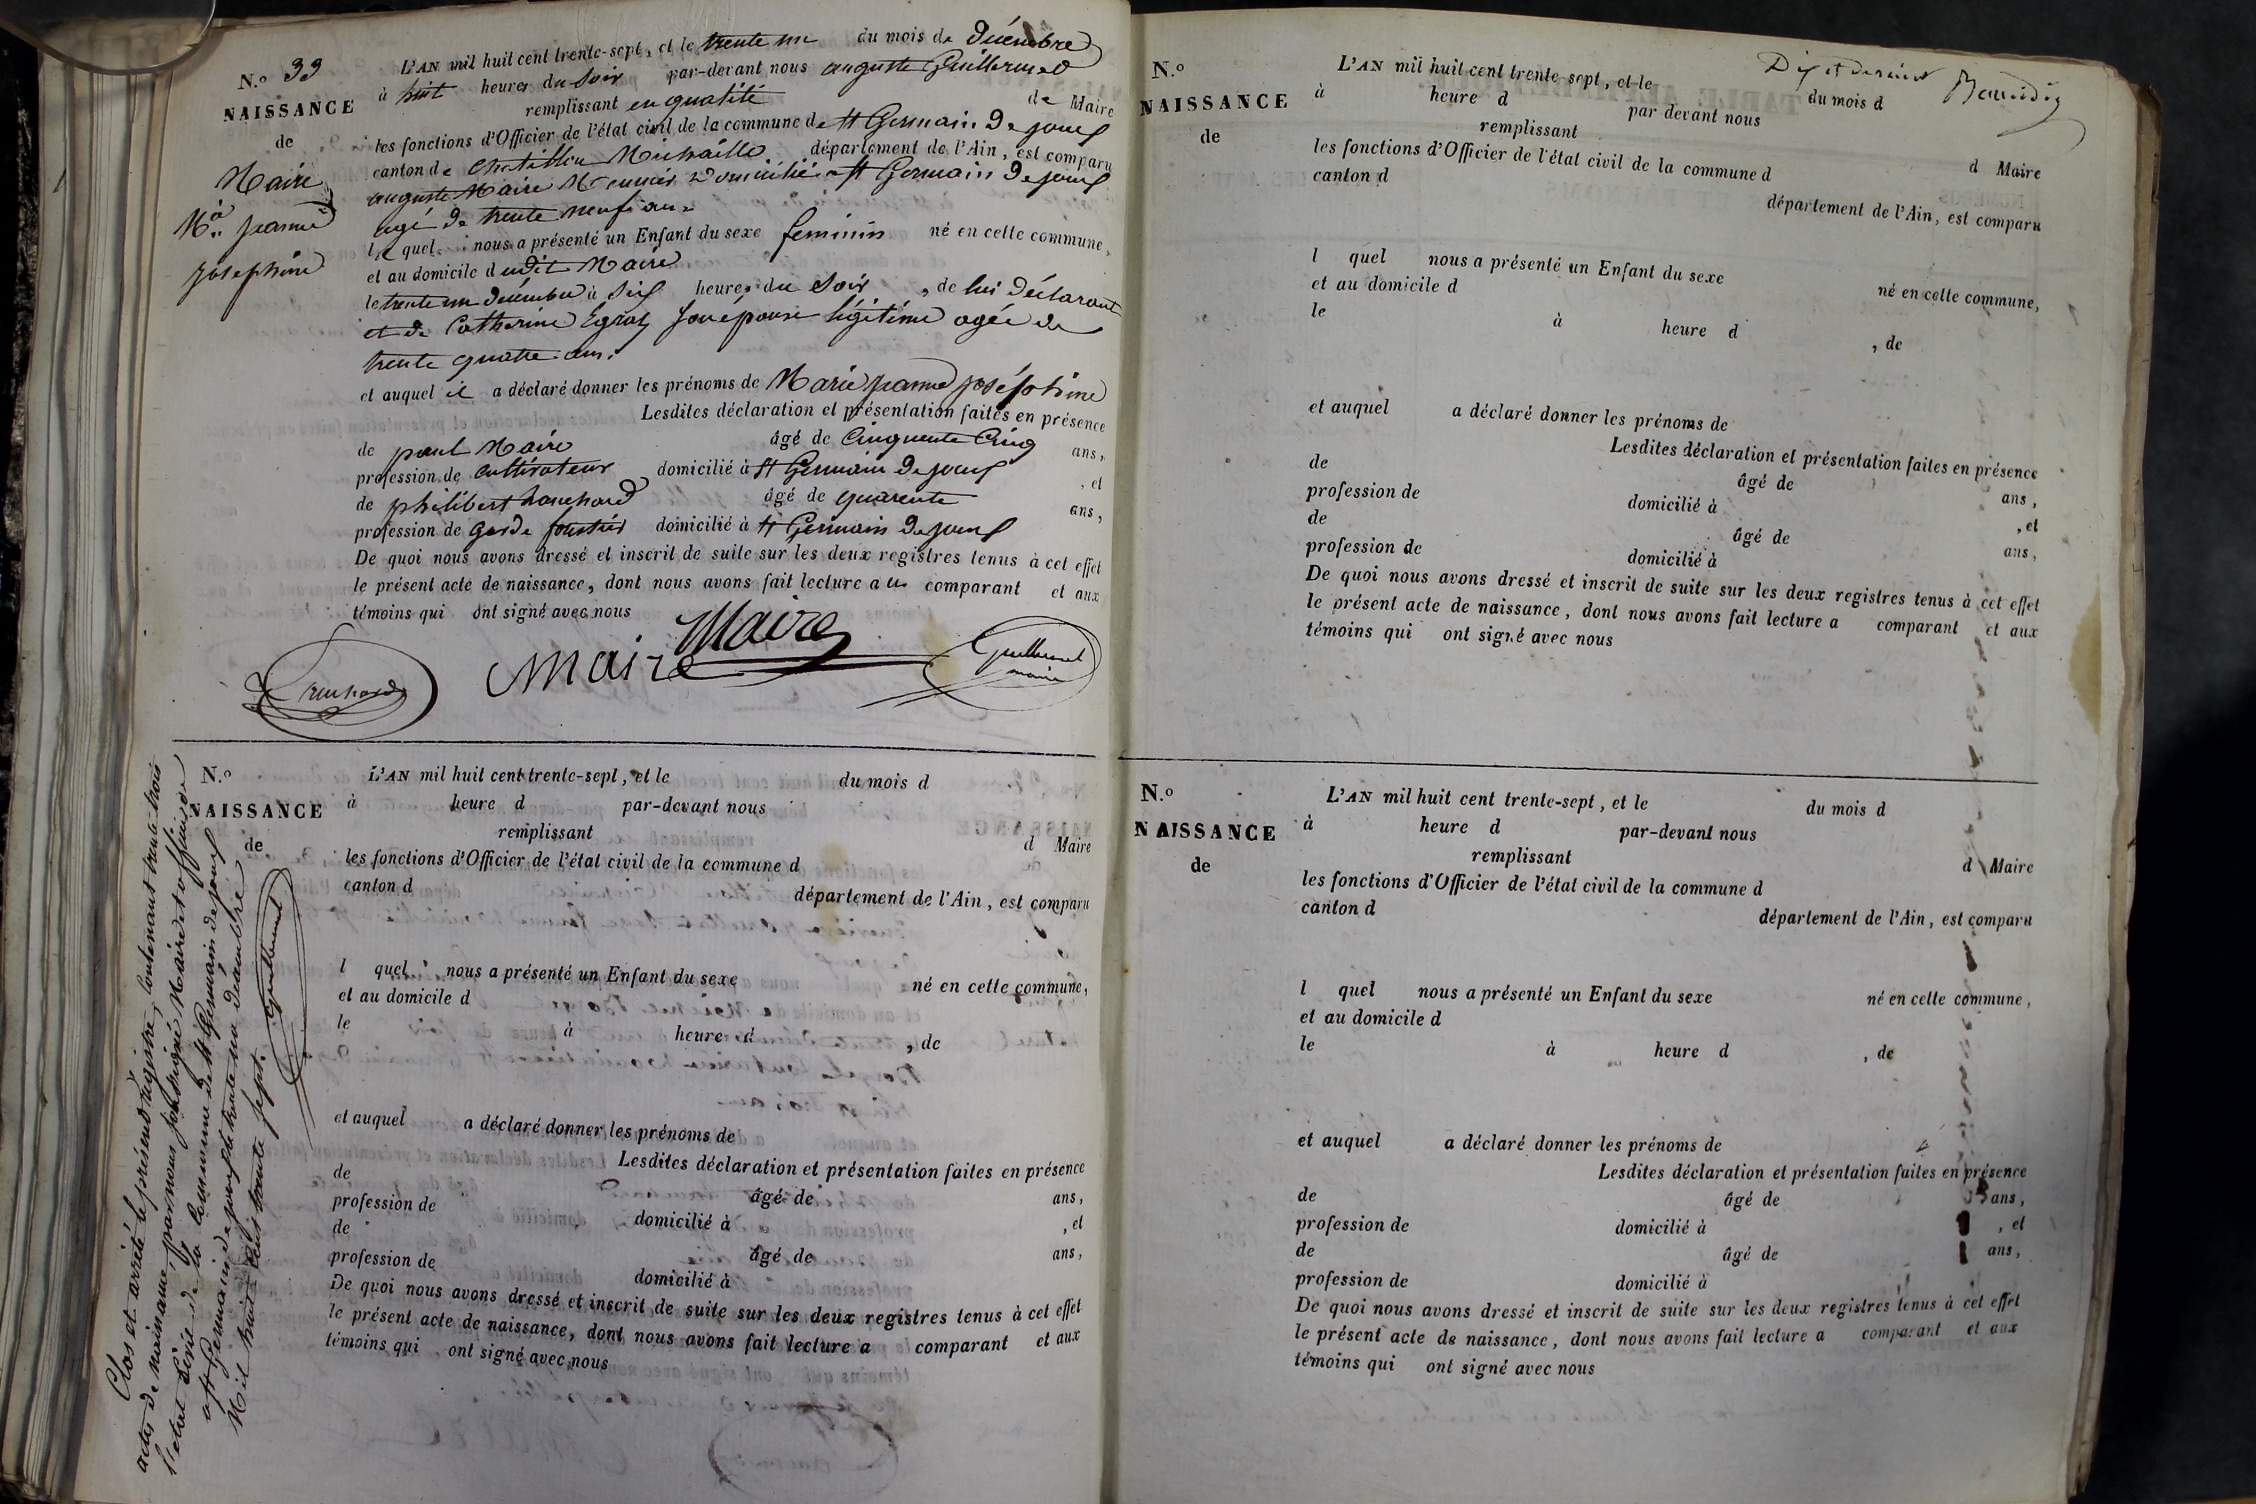 N.o 33
NAISSANCE
de
Maire
Mie jeanne
josephine
L'AN mil huit cent trente-sept, et le trente un du mois de décembre
à huit heures du soir par-devant nous auguste Guillermet
remplissant en qualité de Maire
les fonctions d'Officier de l'état civil de la commune de St Germain de joux
canton de Chatillon Michaille département de l'Ain, est comparu
auguste Maire Meunier Domicilié a St Germain De joux
agé de trente neuf ans
lequel nous a présenté un Enfant du sexe feminin né en cette commune,
et au domicile dudit Maire
le trente un décembre à six heures du soir, de lui déclarant
et de Catherine Egraz son épouse légitime agée de
trente quatre ans.
et auquel il a déclaré donner les prénoms de Marie jeanne joséphine
Lesdites déclaration et présentation faites en présence
de paul Maire âgé de Cinquante Cinq ans,
profession de cultivateur domicilié à St Germain De joux, et
de philibert âgé de quarente ans,
profession de garde forestier domicilié à St Germain De joux
De quoi nous avons dressé et inscrit de suite sur les deux registres tenus à cet effet
le présent acte de naissance, dont nous avons fait lecture au comparant et aux
témoins qui ont signé avec nous
Maire
Maire
Guillermet
maire
N.o
NAISSANCE
de
L'AN mil huit cent trente-sept, et le du mois d
à heure d par-devant nous
remplissant d Maire
les fonctions d'Officier de l'état civil de la commune d
canton d département de l'Ain, est comparu
l quel nous a présenté un Enfant du sexe né en cette commune,
et au domicile d
le à heure d , de
et auquel a déclaré donner les prénoms de
Lesdites déclaration et présentation faites en présence
de âgé de ans,
profession de domicilié à , et
de âgé de ans,
profession de domicilié à
De quoi nous avons dressé et inscrit de suite sur les deux registres tenus à cet effet
le présent acte de naissance, dont nous avons fait lecture a comparant et aux
témoins qui ont signé avec nous
Clos et arrêté le présend régistre, contenant trente trois
actes de naissance par nous soussigné Maire et officier de
l'état Civil de la commune de St Germain de joux
a St Germain de joux le trente un décembre
Mil huit cent trente sept.
Guillermet
N.o
NAISSANCE
de
Dix et dernier
L'AN mil huit cent trente-sept, et le du mois d
à heure d par devant nous
remplissant d Maire
les fonctions d'Officier de l'état civil de la commune d
canton d département de l'Ain, est comparu
l quel nous a présenté un Enfant du sexe né en cette commune,
et au domicile d
le à heure d , de
et auquel a déclaré donner les prénoms de
Lesdites déclaration et présentation faites en présence
de âgé de ans,
profession de domicilié à , et
de âgé de ans,
profession de domicilié à
De quoi nous avons dressé et inscrit de suite sur les deux registres tenus à cet effet
le présent acte de naissance, dont nous avons fait lecture a comparant et aux
témoins qui ont signé avec nous
N.o
NAISSANCE
de
L'AN mil huit cent trente-sept, et le du mois d
à heure d par-devant nous
remplissant d Maire
les fonctions d'Officier de l'état civil de la commune d
canton d département de l'Ain, est comparu
l quel nous a présenté un Enfant du sexe né en cette commune,
et au domicile d
le à heure d , de
et auquel a déclaré donner les prénoms de
Lesdites déclaration et présentation faites en présence
de âgé de ans,
profession de domicilié à , et
de âgé de ans,
profession de domicilié à
De quoi nous avons dressé et inscrit de suite sur les deux registres tenus à cet effet
le présent acte de naissance, dont nous avons fait lecture a comparant et aux
témoins qui ont signé avec nous